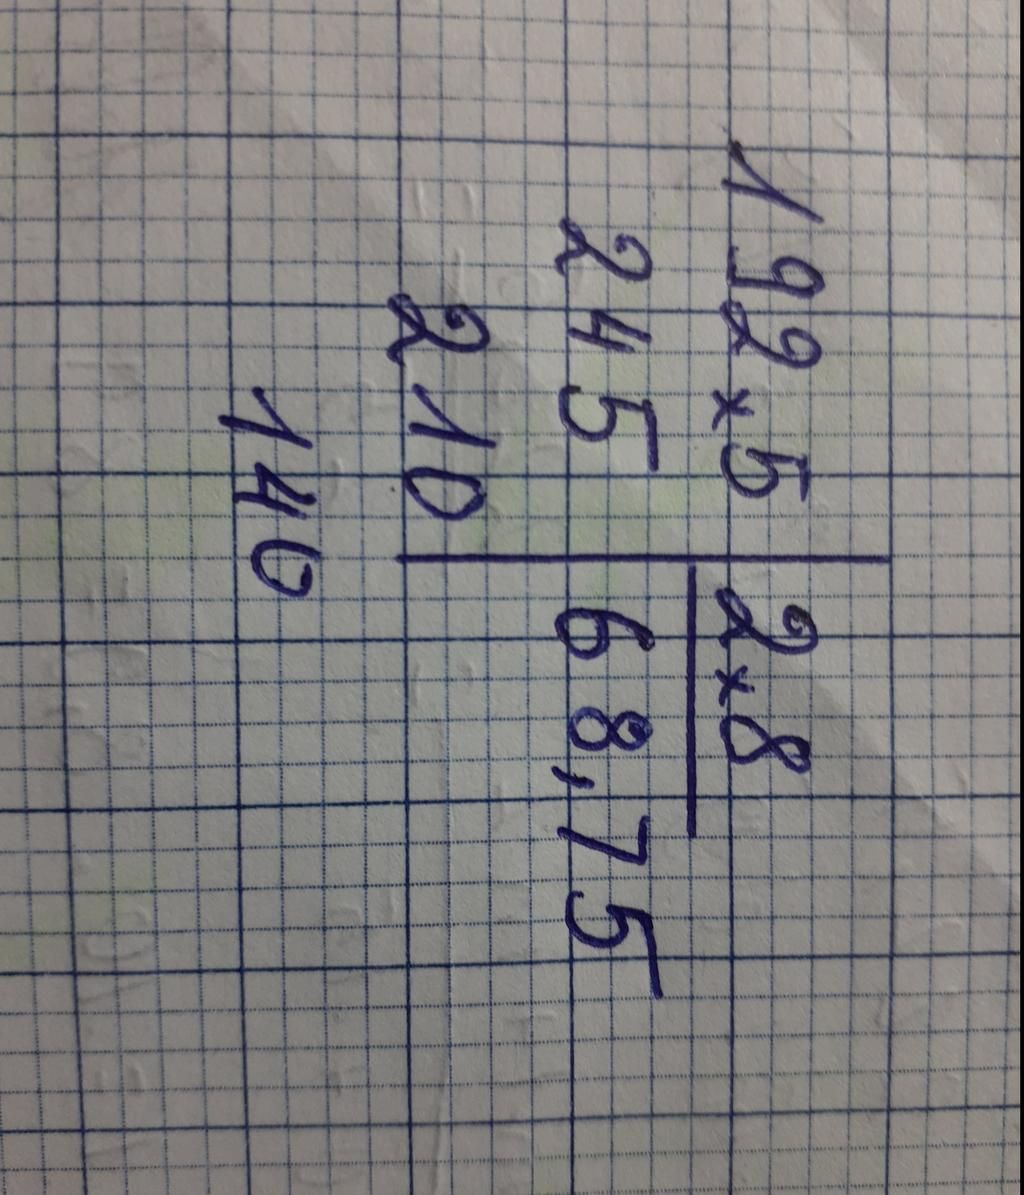 192×5 2×8
245 68,75
210
140